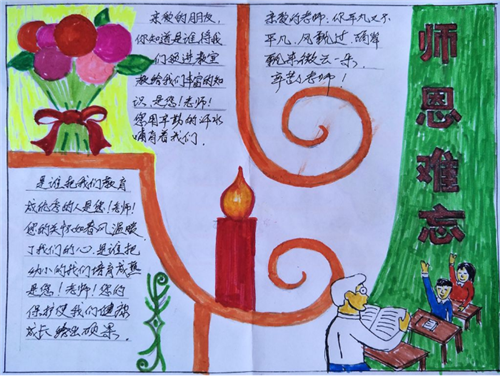 亲爱的朋友,
你知道是谁将我
们领进教室
教给我们丰富的知
识,是您!老师!
您用辛勤的汗水
哺育着我们.
亲爱的老师,你平凡又不
平凡,风飘过,
飘来微云一朵,
辛苦了老师!
师恩难忘
是谁把我们教育
成优秀的人是您!老师!
您的关怀如春风,温暖
了我们的心,是谁把
幼小的我们培育成熟
是您!老师!您的
保护使我们健康
成长,绘出硕果.